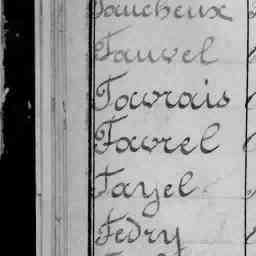 Faucheux
Fauvel
Favrais
Favrel
Fayel
Fedry